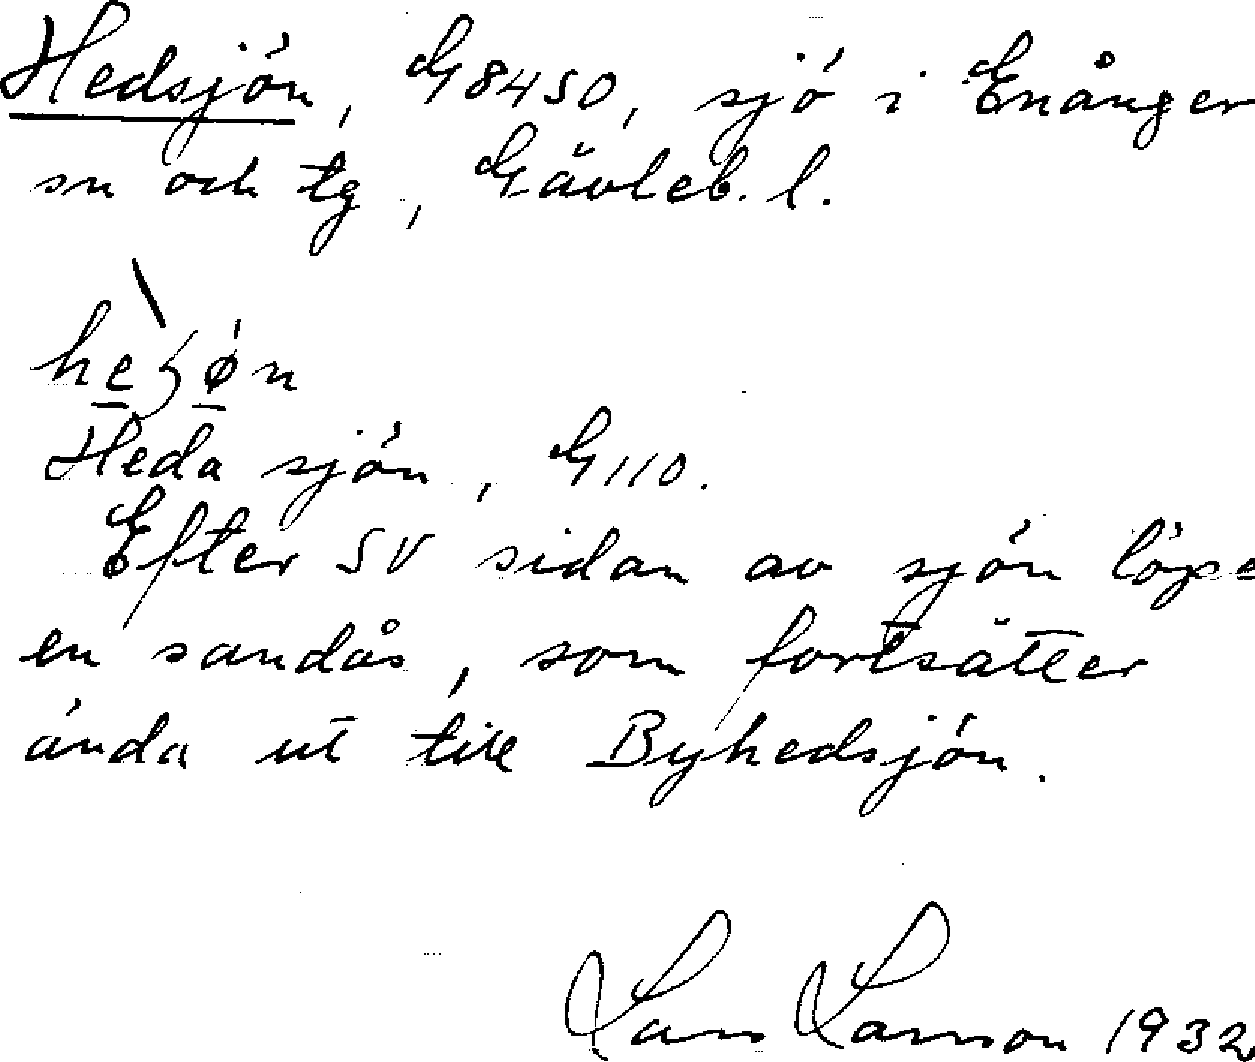 Hedsjön, G8450, sjö i Enånger
sn och tg, Gävleb. l.
Heda sjön, G110.
Efter SV sidan av sjön löpe
en sandås, som fortsätter
ända ut till Byhedsjön.
Lars Larsson 1932